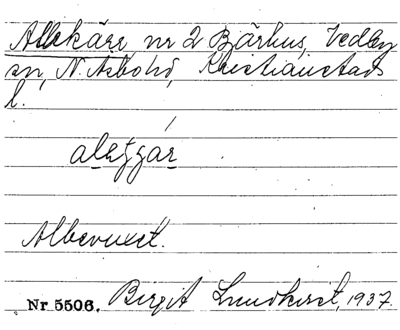 Allekärr, nr 2 Bjärhus, Vedby
sn, N. Åsbo hd, Kristianstads
l.
aleʃʃar
Albevuxet.
Nr 5506. Birgit Lundkvist, 1937.